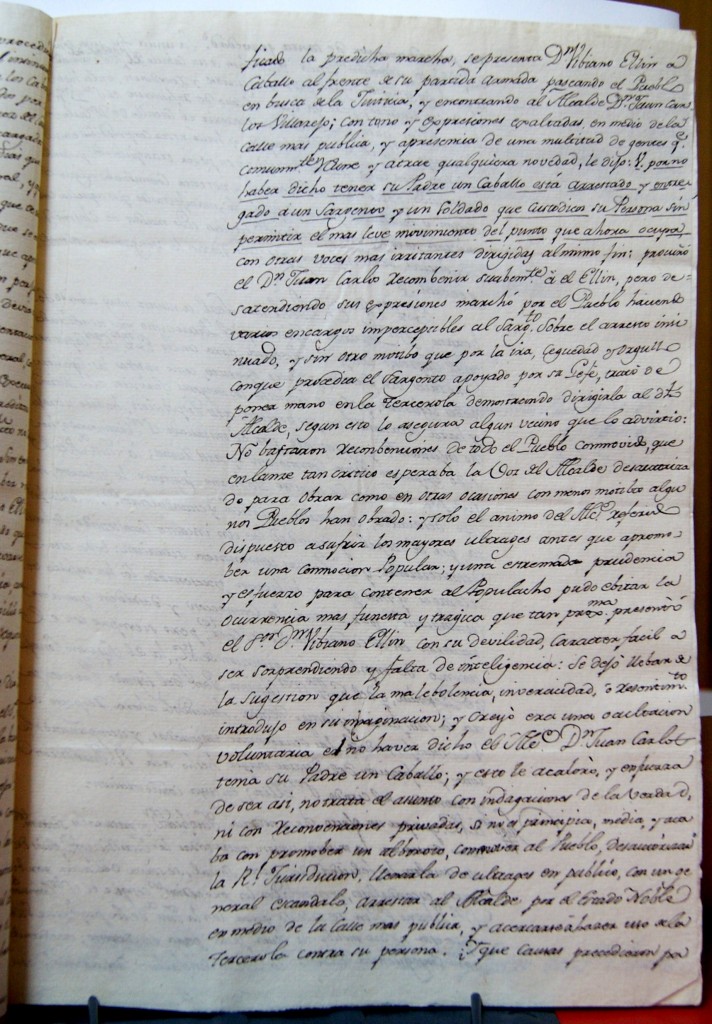 ficado la predicha marcha, se presenta Dn. Vibiano Ellin a
Caballo al frente de su partida armada paseando el Pueblo
en busca de la Justicia, y encontrando al Alcalde Dn. Juan Car
los Villarejo; con tono y expresiones exaltadas, en medio de la
Calle mas publica, y apresencia de una multitud de gentes q.e
comunmte. y atrae qualquiera novedad, le dijo: V. por no
haber dicho tener su Padre un Caballo está arrestado y entre
gado á un Sargento y un Soldado que custodien su Persona sin
permitir el mas leve movimiento del punto que ahora ocupa
con otras voces mas irritantes dirigidas al mismo fin: procuró
el Dn. Juan Carlos reconbenir suabemte. á el Ellin, pero de-
satendiendo sus expresiones marchó por el Pueblo haciendo
varios encargos imperceptibles al Sargto. sobre el arresto ini
nuado, y sin otro motibo que por la ira, ceguedad y orgullo
conque procedia el Sargento apoyado por su Gefe, trató de
poner mano en la Tercerola demostrando dirigirla al dho.
Alcalde, segun esto lo asegura algun vecino que lo advirtio:
No bastaron reconbenciones de todo el Pueblo conmovido, que
en lance tan critico esperaba la Voz del Alcalde desautoriza
do para obrar como en otras ocasiones con menos motibo algu
nos Pueblos han obrado: y solo el animo del Alc.e referido
dispuesto asufrir los mayores ultrages antes que apromo-
ber una conmocion Popular; y una estremada prudencia
y esfuerzo para contener al Populacho pudo ebitar la
ocurrencia mas funesta y tragica que tan proxma. presentó
el Sor. Dn. Vibiano Ellin con su devilidad, caracter facil a
ser sorprendiendo y falta de inteligencia: Se dejó llebar de
la sugestion que la malebolencia, inveracidad, o resentimto.
introdujo en su imaginacion; y creyó era una ocultacion
voluntaria el no haver dicho el Alce. Dn. Juan Carlos
tenia su Padre un Caballo; y esto le acaloró, y en fuerza
de ser asi, no trata el asunto con indagaciones de la verdad,
ni con reconvenciones privadas, si no es principia, media, y aca
ba con promober un alboroto, conmover al Pueblo, desautorizar
la Rl. Jurisdicion, llenarla de ultrages en publico, con un ge
neral escandalo, arrestar al Alcalde por el Estado Noble
en medio de la Calle mas publica, y acercarse á hacer uso de la
Tercerola contra su persona. ¿Y que causas precedieron pa